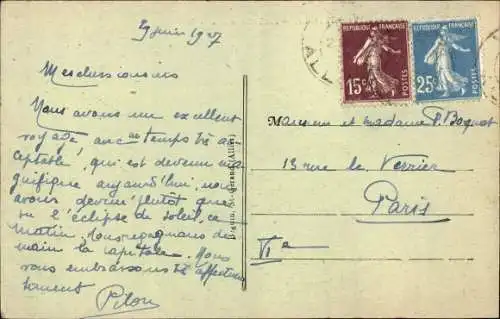 29 juin 1927
Mes chers cousins
Nous avons un excellent
voyage avec un temps très ac
ceptable, qui est devenu ma
gnifique aujourd'hui, nous
avons deviné plutôt que
vu l'éclipse de soleil, ce
matin. Nous regagnons de
main la capitale. Nous
vous embrassons très affectueu
sement
Pilon
REPUBLIQUE FRANÇAISE
15c
POSTES
REPUBLIQUE FRANÇAISE
25c
POSTES
ALL
Monsieur et Madame P. Boquot
13 rue le Verrier
Paris
VIe
St-Gerand (Allier)